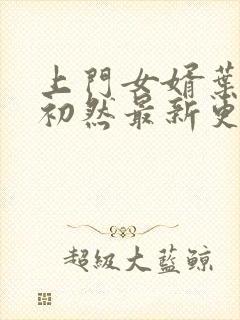 上門女婿葉
初然最新更
超級大藍鲸